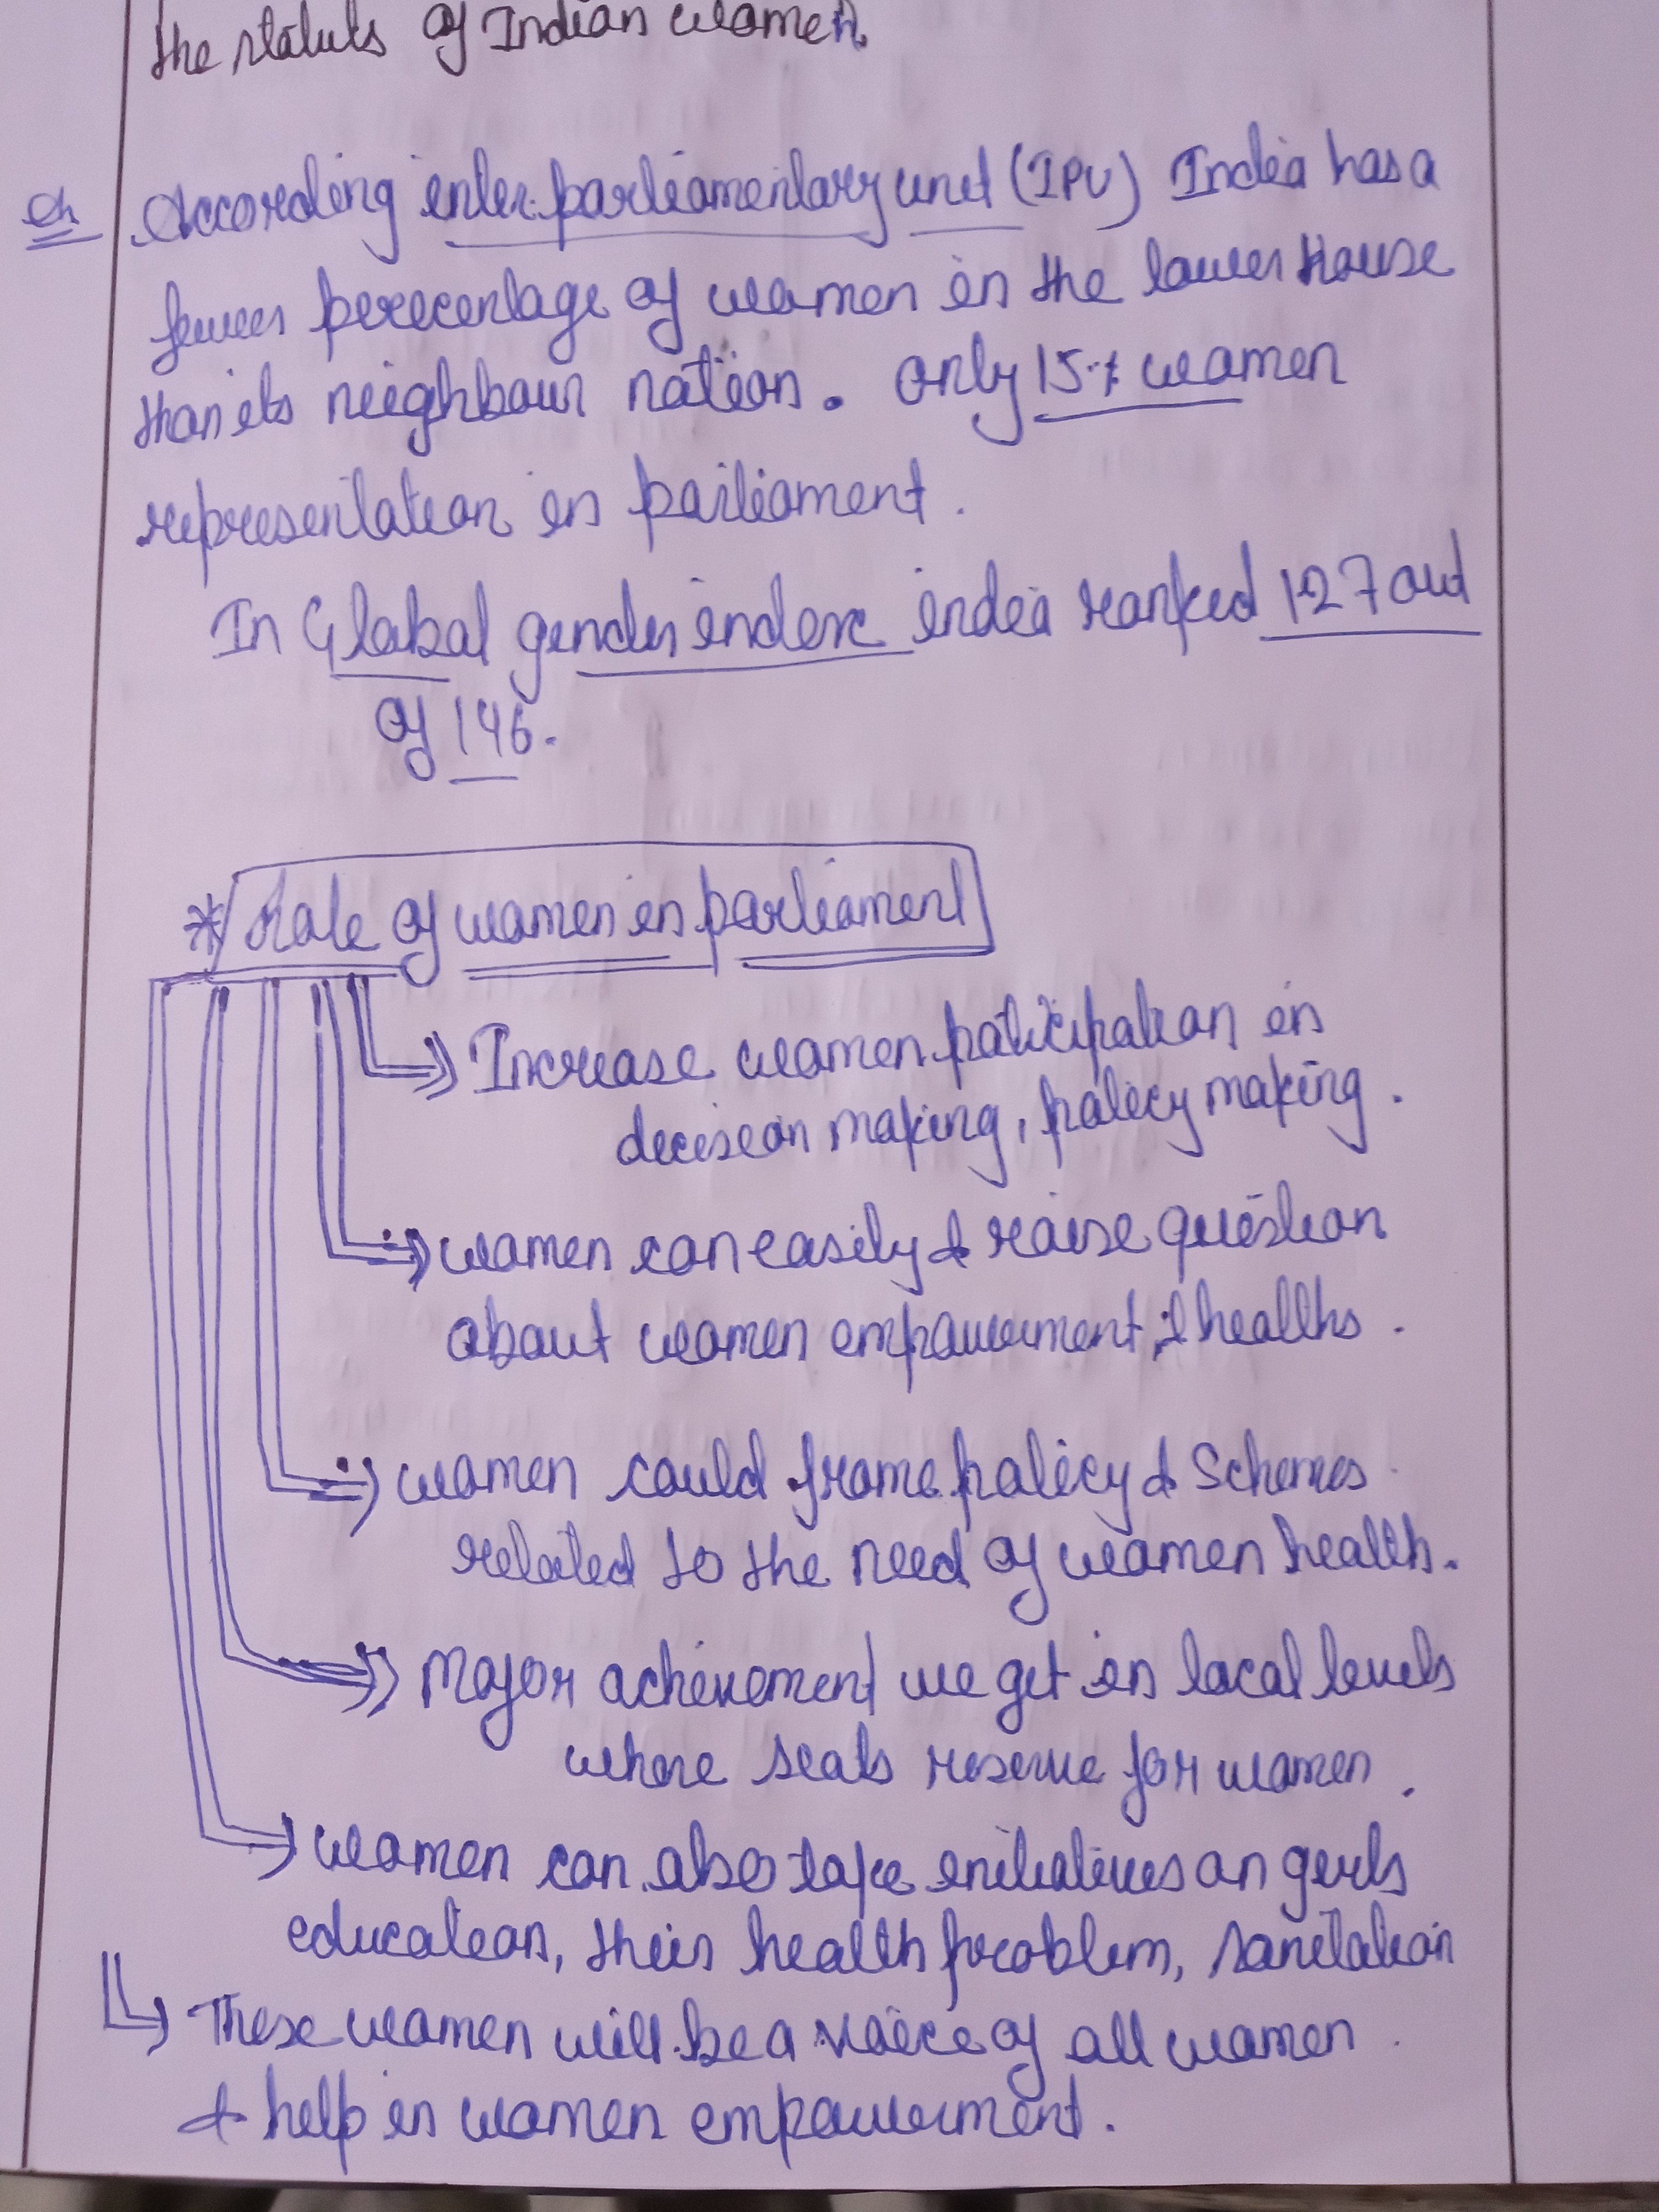 the status of Indian women.
Ex According inter-parliamentary unit (IPU) India has a
fewer percentage of women in the lower House
than its neighbour nation. Only 15% women
representation in parliament.
In Global gender index india ranked 127 out
of 146.
* Role of women in parliament
Increase women paticipation in
decision making, policy making.
women can easily & raise question
about women empowerment, & healths.
women could frame policy & Schemes
related to the need of women health.
Major achievement we get in local levels
where seats reserve for women.
women can also take initiatives on girls
education, their health problem, sanitation
These women will be a voice of all women
& help in women empowerment.